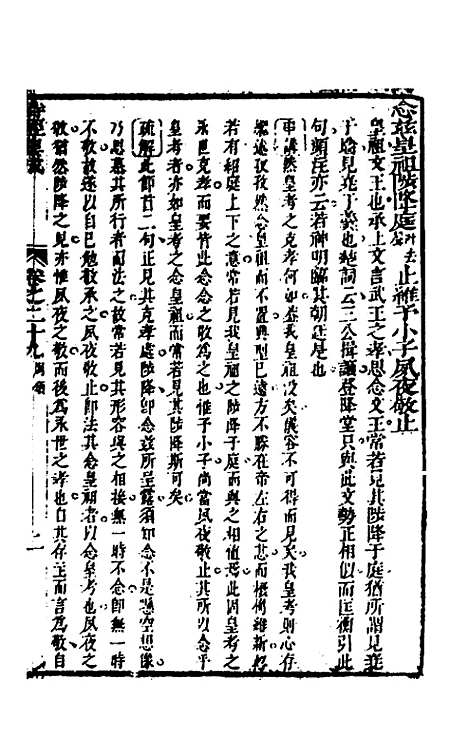 念玆皇祖陟降庭止維予小子夙夜敬止
皇祖文王也承上文言武王之孝思念文王常若見其陟降于庭猶所謂見堯
于墻見堯于羹也楚詞云三公揖讓登降堂只與此文勢正相似而匡衡引此
句顏註亦云若神明臨其朝廷是也
串講然皇考之克孝何如哉我皇祖沒矣儀容不可得而見矣我皇考則心存
繼述
若有紹庭上下之意常若見皇祖之陟降于庭而與之相值焉此因皇考之
永世克孝而念之敬爲之也惟予小子尚當夙夜敬止其所以念乎
皇考者亦如皇考之念皇祖而常若見其陟降斯可矣
疏解此節首二句正見其克孝處陟降卽念玆所呈露須知念不是懸空想像
乃思慕其所行者而法之故常若見其形容與之相接無一時不念卽無一時
不敬故遂以自已勉敬承之夙夜敬止卽法其念皇祖者以念皇考也夙夜之
敬宿然陟降之見亦惟夙夜之敬而後爲永世之孝也自其存主而言爲敬自
詩經
卷之二十九
周頌